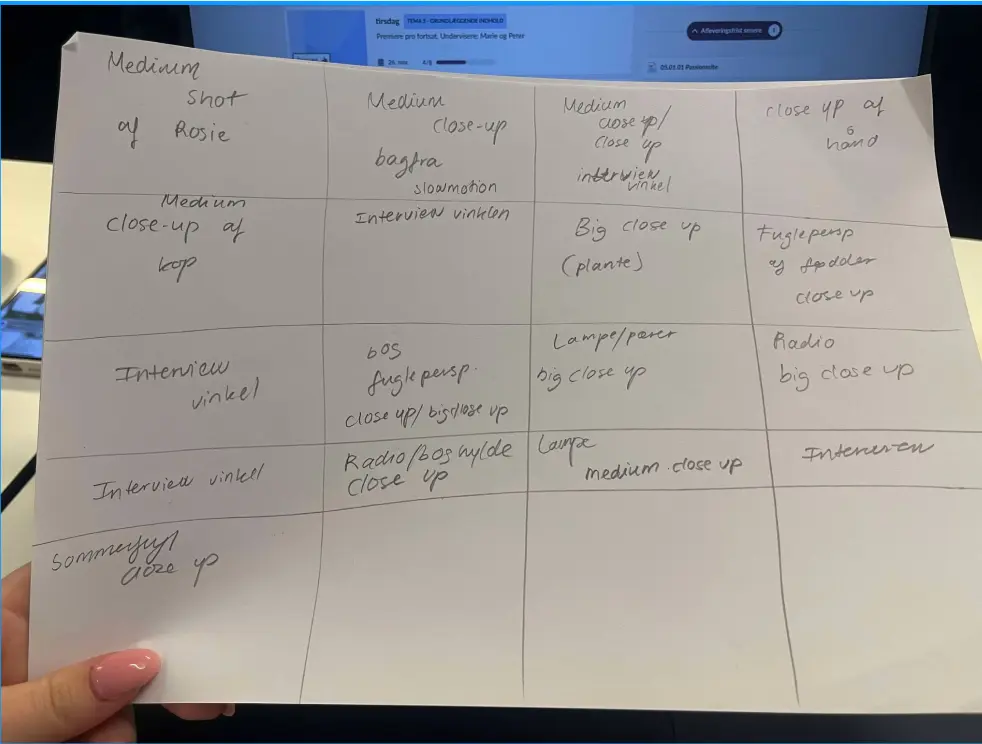 tirsdag TEMA 5 - GRUNDLÆGGENDE INDHOLD
Premiere pro fortsat, Undervisere: Marie og Peter
Afleveringsfrist senere
26. nov 4/5
Medium
Shot
af Rosie
Medium
close-up
bagfra
slowmotion
Medium
close up/
close up
interview
vinkel
close up af
hånd
Medium
close-up af
kop
Interview vinklen
Big close up
(plante)
Fuglepersp
af fødder
close up
Interview
vinkel
bog
fuglepersp.
close up/big close up
Lampe/pærer
big close up
Radio
big close up
Interview vinkel
Radio/boghylde
close up
Lampe
medium close up
Interview
Sommerfugl
close up